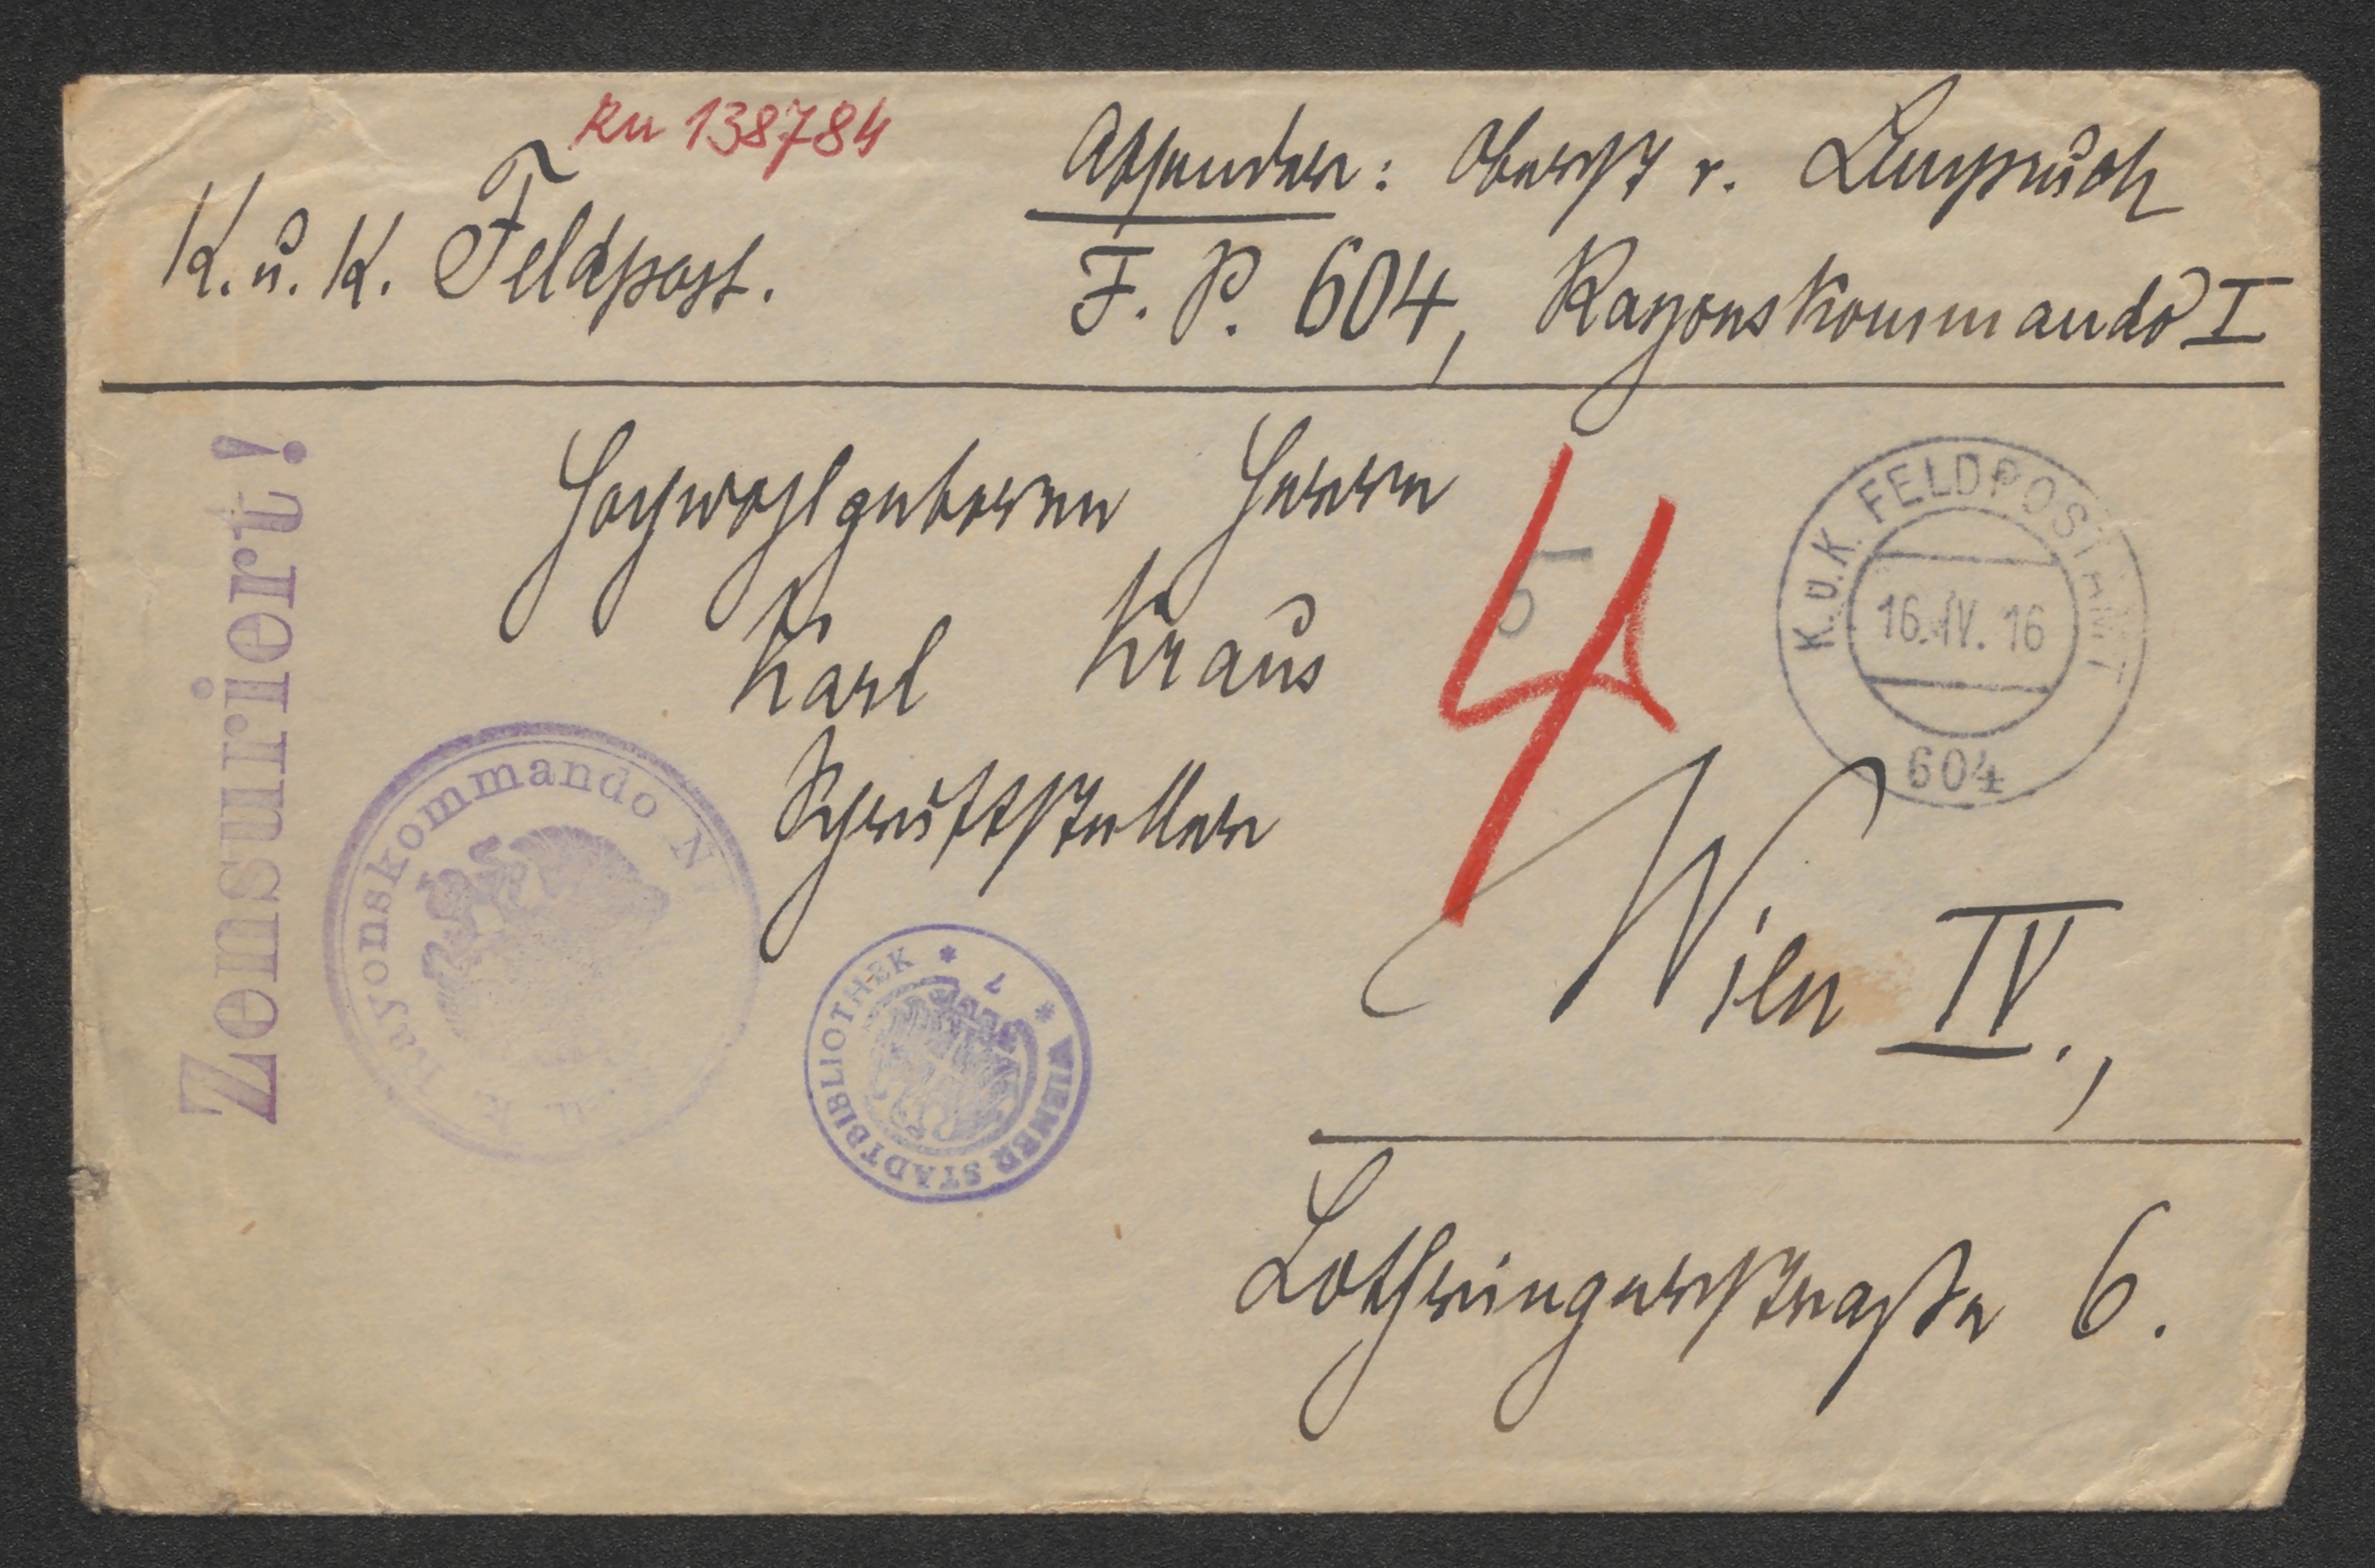 RN 138784
K. u. K. Feldpost.
Absender: Oberst v.
F. P. 604, Rayonskommando I
Hochwohlgeboren Herrn
Karl Kraus
Schriftsteller
4
Wien IV.,
Lothringerstraße 6.
Zensuriert!
K.U.K. FELDPOSTAMT
16. IV. 16
604
Rayonskommando N
* WIENER STADTBIBLIOTHEK *